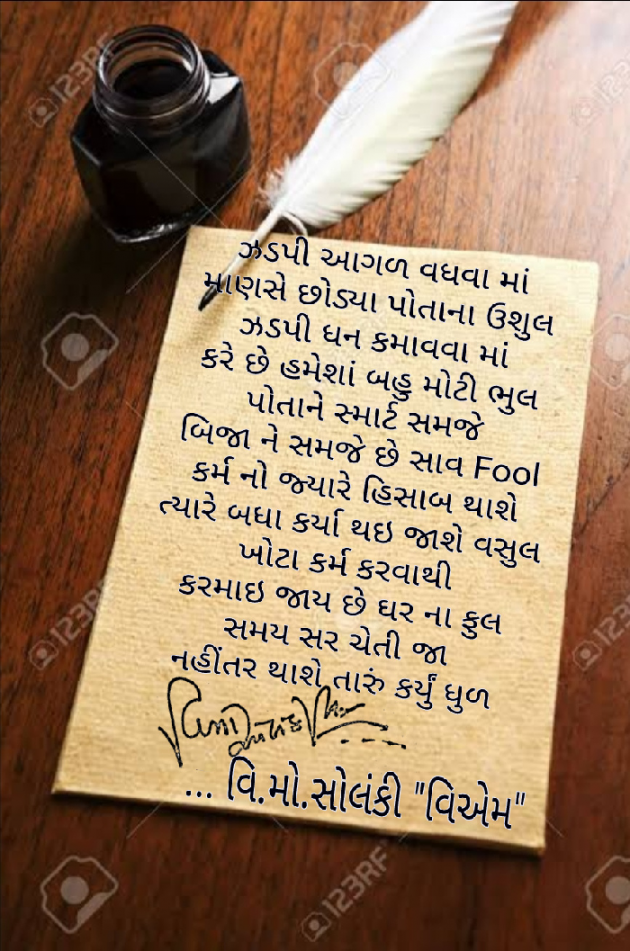 ઝડપી આગળ વધવા માં
માણસે છોડ્યા પોતાના ઉશુલ
ઝડપી ધન કમાવવા માં
કરે છે હમેશાં બહુ મોટી ભુલ
પોતાને સ્માર્ટ સમજે
બિજા ને સમજે છે સાવ Fool
કર્મ નો જ્યારે હિસાબ થાશે
ત્યારે બધા કર્યા થઇ જાશે વસુલ
ખોટા કર્મ કરવાથી
કરમાઇ જાય છે ઘર ના ફુલ
સમય સર ચેતી જા
નહીંતર થાશે તારું કર્યું ધુળ
... વિ.મો.સોલંકી "વિએમ"
123RF
123RF
123RF
123RF
123RF